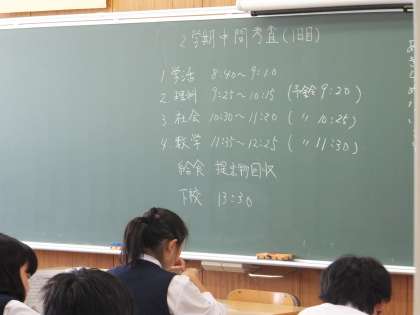 2学期中間考査(1日目)
1 学活 8:40~9:10
2. 理科 9:25~10:15 (予鈴 9:20)
3 社会 10:30~11:30 (〃 10:25)
4. 数学 11:35~12:25 (〃 11:30)
給食 提出物回収
下校 13:30